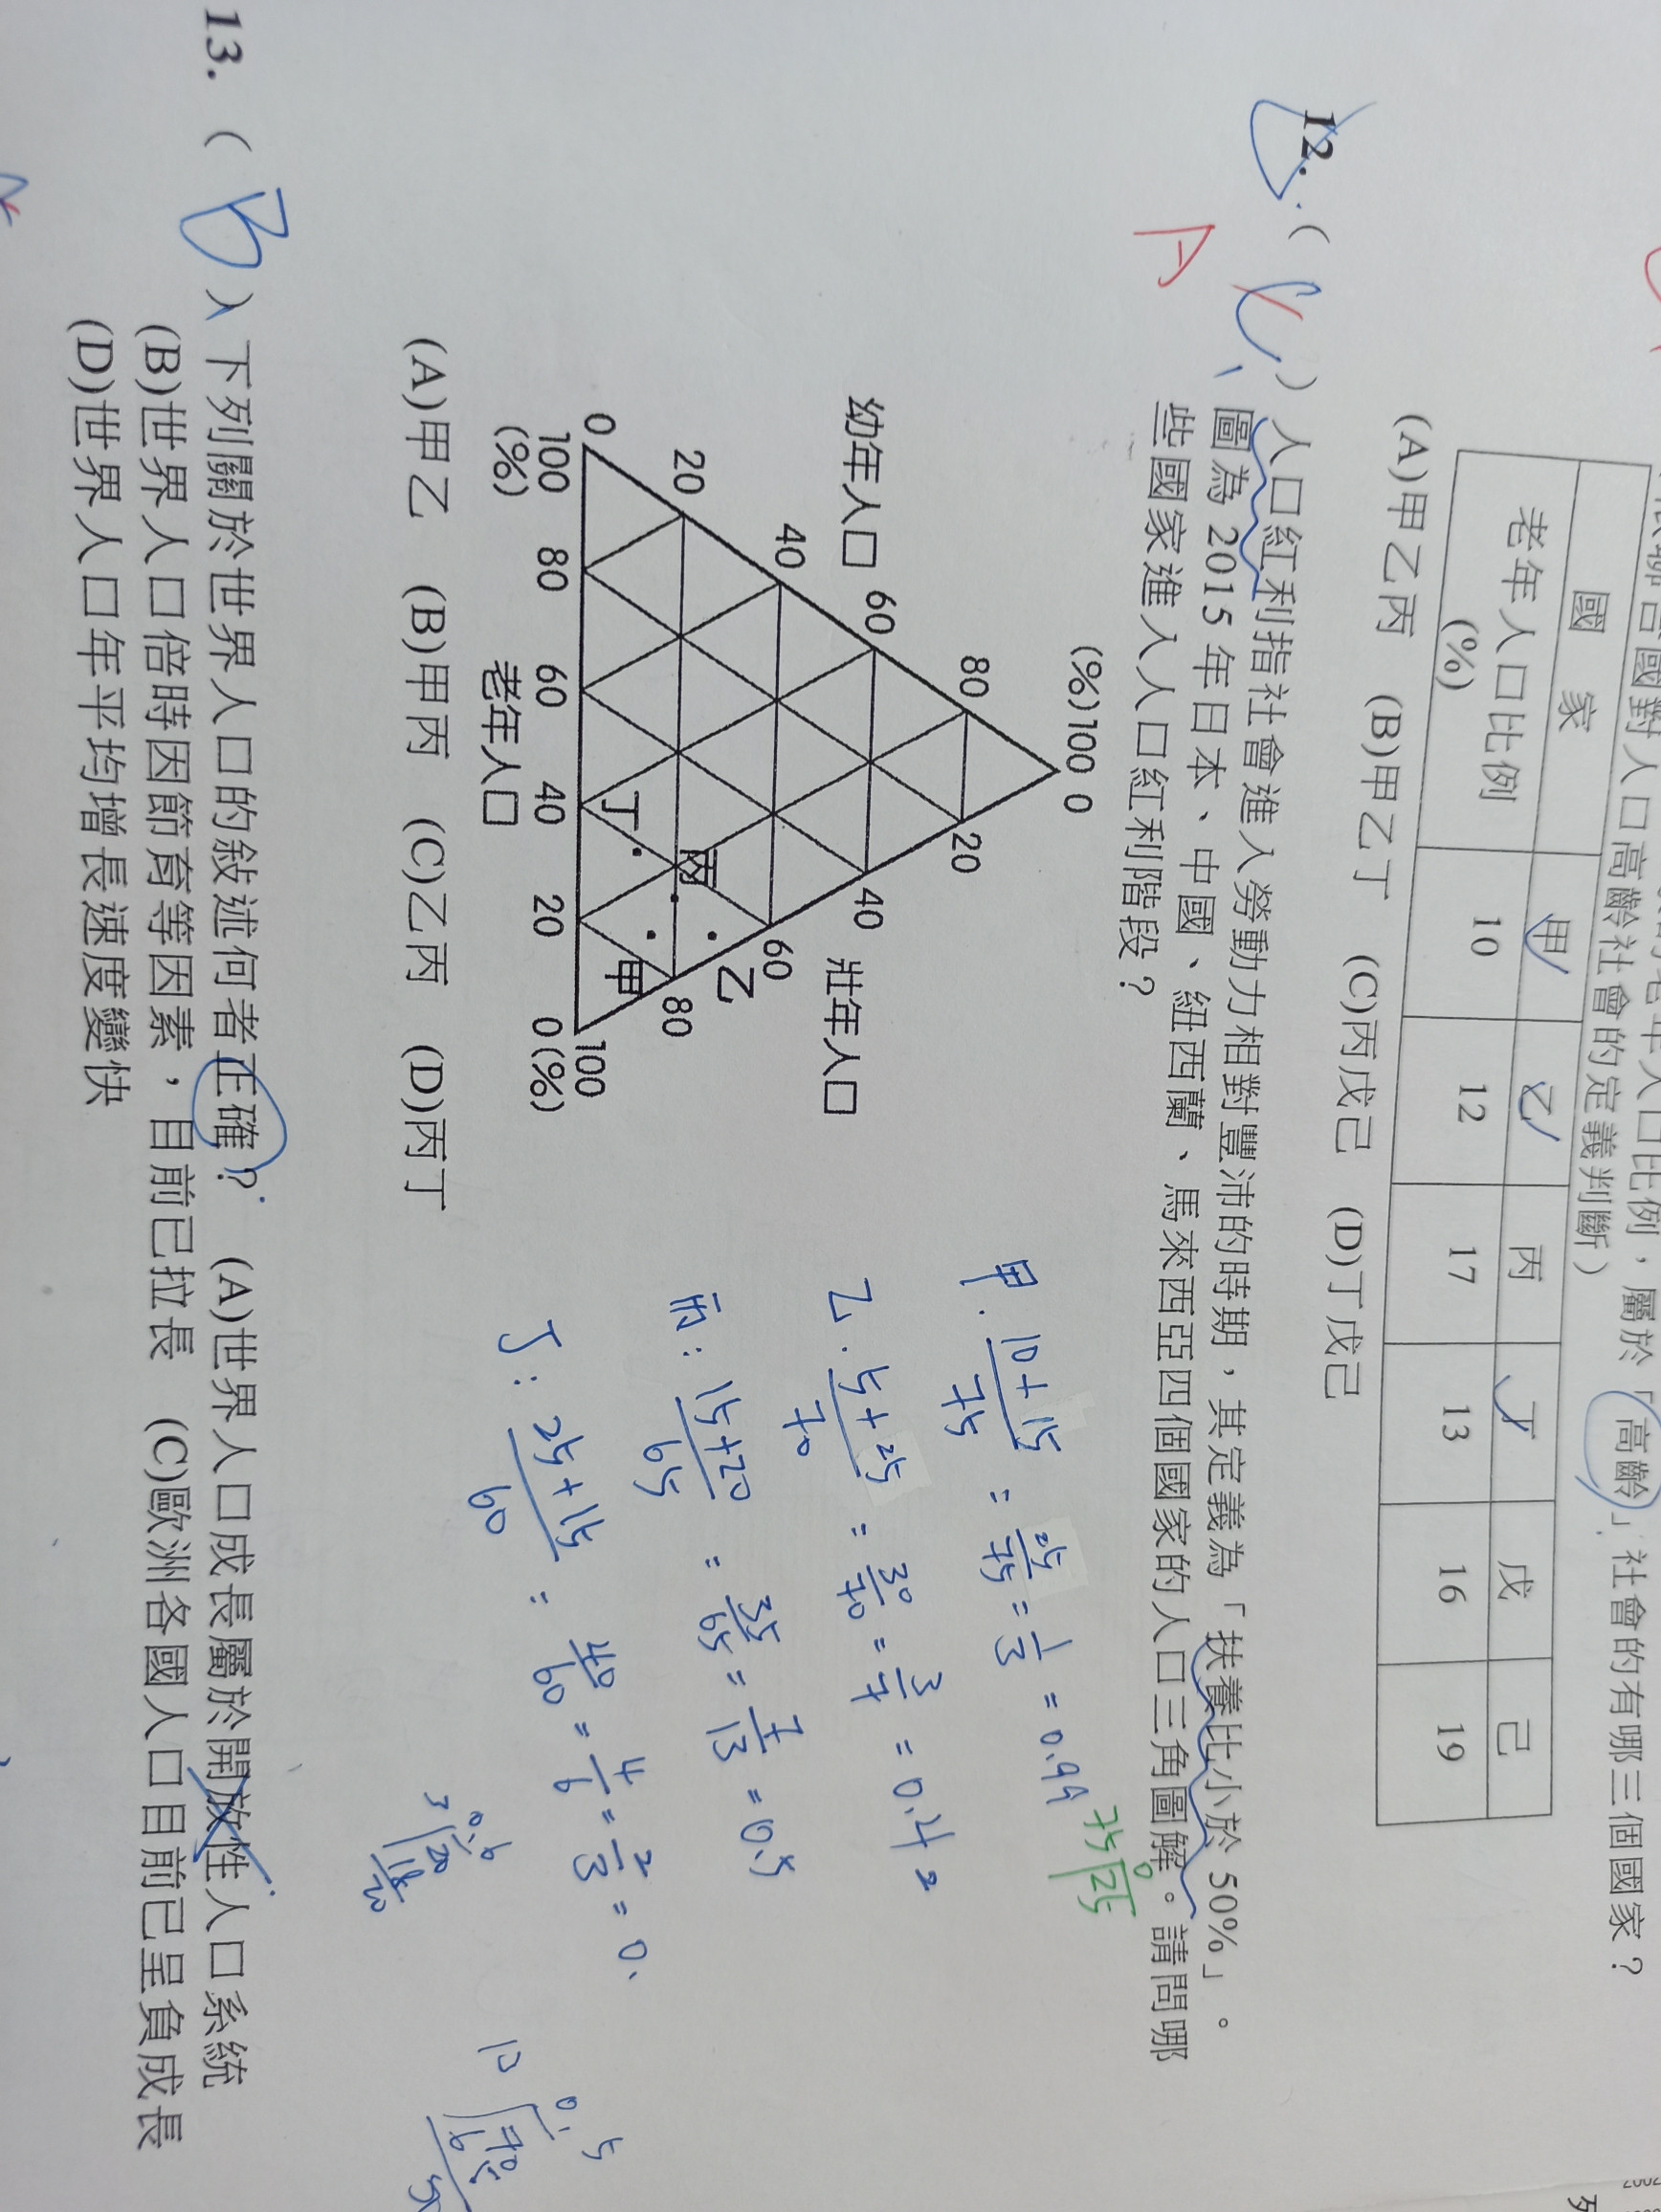 高齡社會的定義判斷）
「高齡」社會的有哪三個國家？
國　家 甲 乙 丙 丁 戊 己
老年人口比例(%) 10 12 17 13 16 19
(A)甲乙丙　(B)甲乙丁　(C)丙戊己　(D)丁戊己
12.（　）人口紅利指社會進入勞動力相對豐沛的時期，其定義為「扶養比小於 50%」。
A
圖為 2015 年日本、中國、紐西蘭、馬來西亞四個國家的人口三角圖解。請問哪
些國家進入人口紅利階段？
(%)100 0
80 20
幼年人口 60 40 壯年人口
40 60
乙
20 丙 80
丁 甲
0 100
100 80 60 40 20 0(%)
(%) 老年人口
甲. 10+15/75 = 25/75 = 1/3 = 0.99
75 25 0
乙. 5+25/70 = 30/70 = 3/7 = 0.42
丙: 15+20/65 = 35/65 = 7/13 = 0.5
丁: 25+15/60 = 40/60 = 4/6 = 2/3 = 0.
(A)甲乙　(B)甲丙　(C)乙丙　(D)丙丁
13.（B）下列關於世界人口的敘述何者正確？　(A)世界人口成長屬於開放性人口系統
(B)世界人口倍時因節育等因素，目前已拉長　(C)歐洲各國人口目前已呈負成長
(D)世界人口年平均增長速度變快